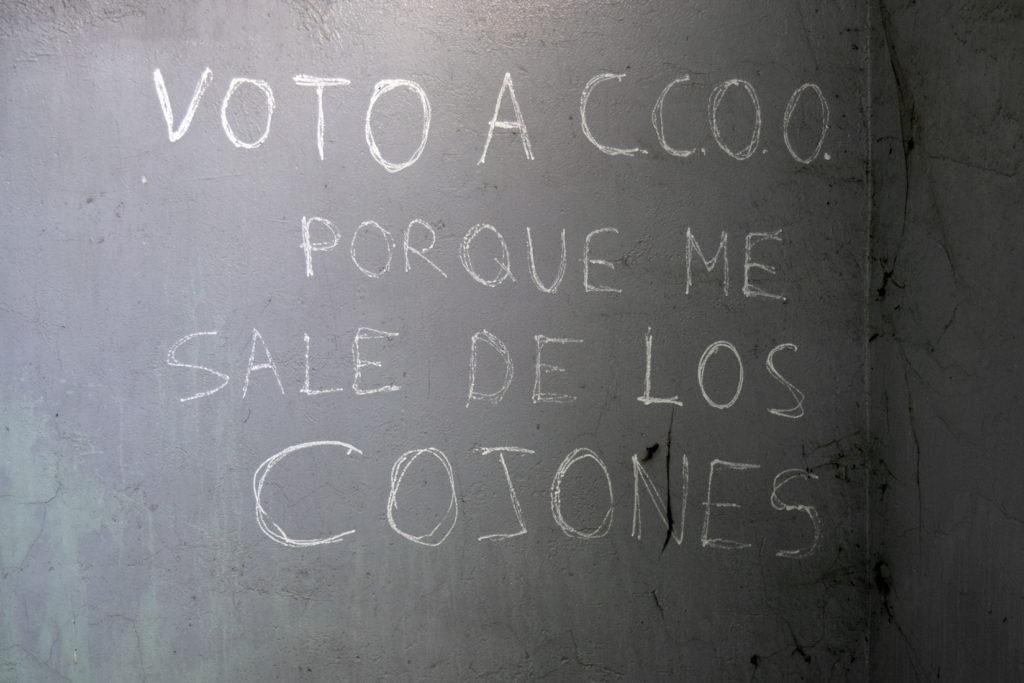 VOTO A C.C.O.O.
PORQUE ME
SALE DE LOS
COJONES